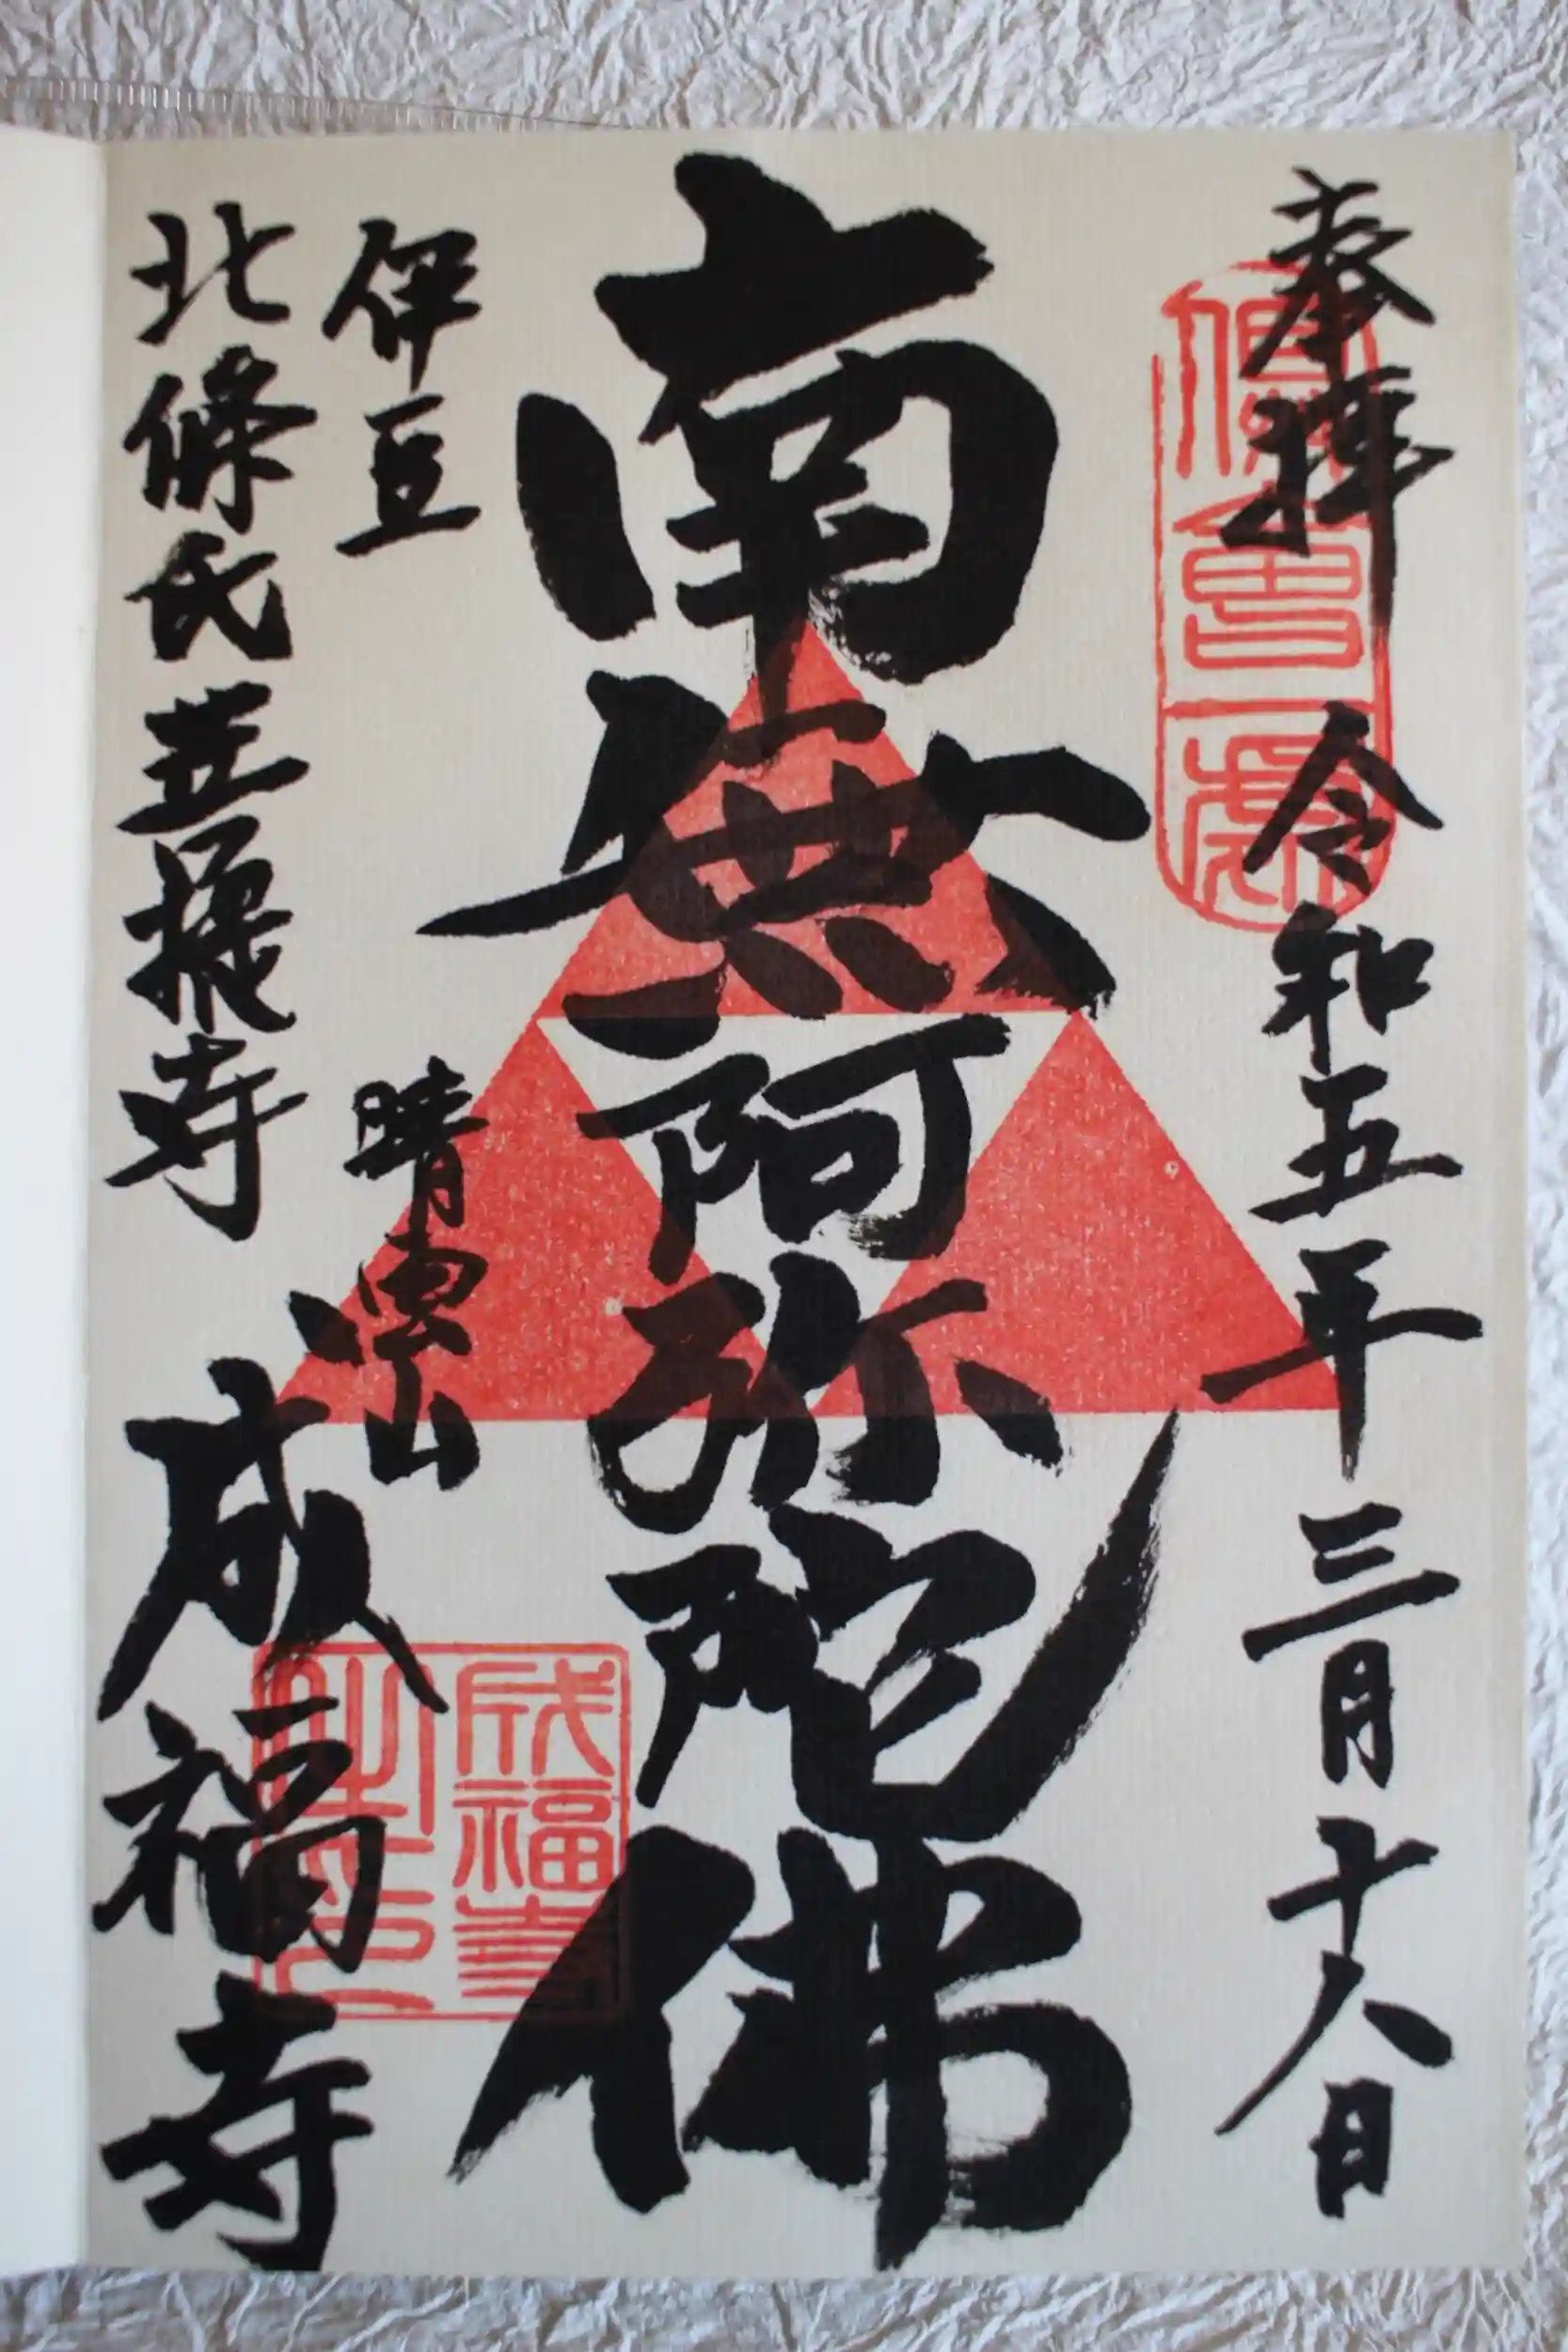 奉拝 令和五年三月十八日
南無阿弥陀佛
伊豆
北條氏菩提寺
晴雲山
成福寺
成福寺
之印